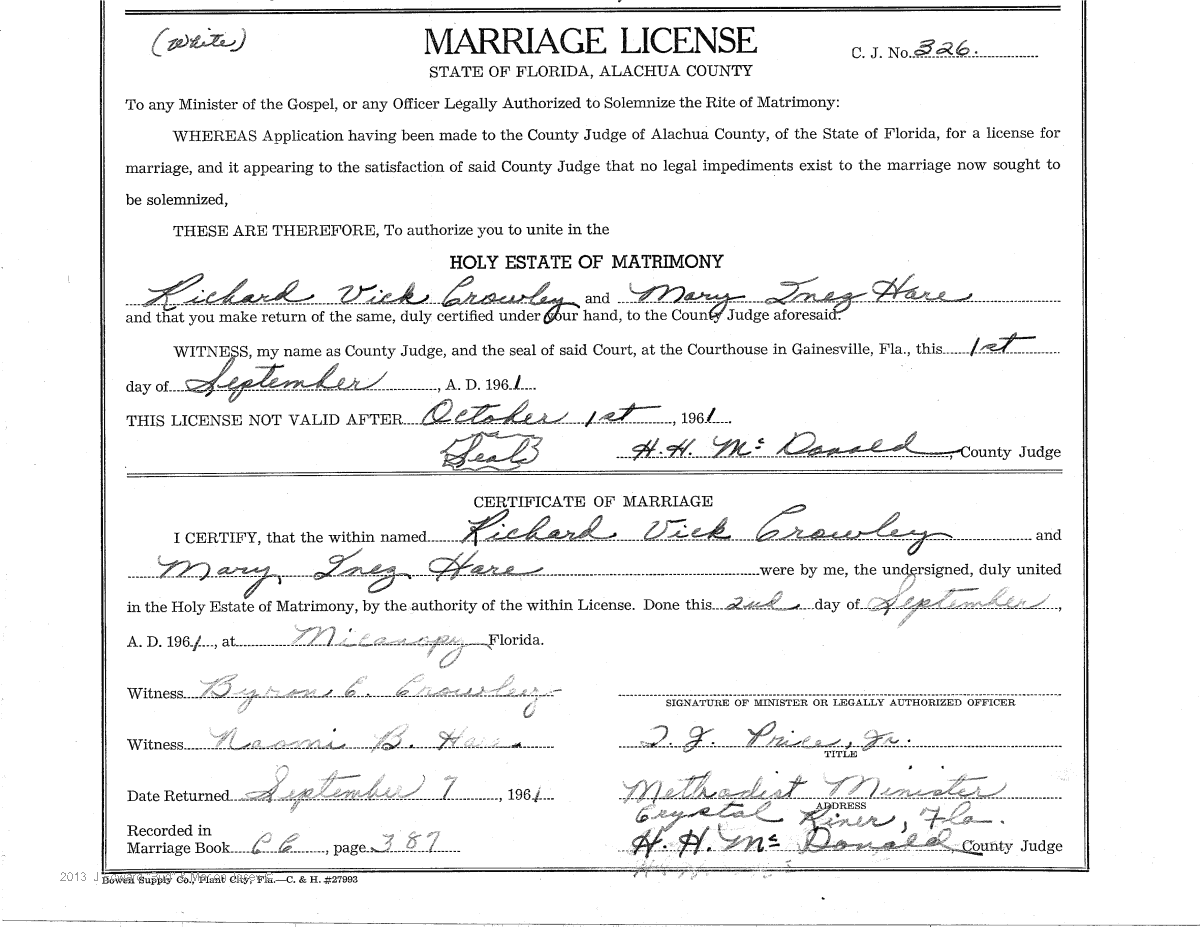 (White)
MARRIAGE LICENSE
C. J. No. 326.
STATE OF FLORIDA, ALACHUA COUNTY
To any Minister of the Gospel, or any Officer Legally Authorized to Solemnize the Rite of Matrimony:
WHEREAS Application having been made to the County Judge of Alachua County, of the State of Florida, for a license for
marriage, and it appearing to the satisfaction of said County Judge that no legal impediments exist to the marriage now sought to
be solemnized,
THESE ARE THEREFORE, To authorize you to unite in the
HOLY ESTATE OF MATRIMONY
Richard Vick Crowley and Mary Inez Hare
and that you make return of the same, duly certified under your hand, to the County Judge aforesaid.
WITNESS, my name as County Judge, and the seal of said Court, at the Courthouse in Gainesville, Fla., this 1st
day of September, A. D. 1961
THIS LICENSE NOT VALID AFTER October 1st, 1961.
Seal H. H. Mc Donald, County Judge
CERTIFICATE OF MARRIAGE
I CERTIFY, that the within named Richard Vick Crowley and
Mary Inez Hare were by me, the undersigned, duly united
in the Holy Estate of Matrimony, by the authority of the within License. Done this 2nd day of September,
A. D. 1961, at Micanopy Florida.
Witness Byron E. Crowley
SIGNATURE OF MINISTER OR LEGALLY AUTHORIZED OFFICER
Witness Naomi B. Hare T. J. Price, Jr.
TITLE
Date Returned September 7, 1961 Methodist Minister
ADDRESS
Crystal River, Fla.
Recorded in
Marriage Book CC, page 387 H. H. Mc Donald, County Judge
Bowen Supply Co., Plant City, Fla.—C. & H. #27993
2013 J